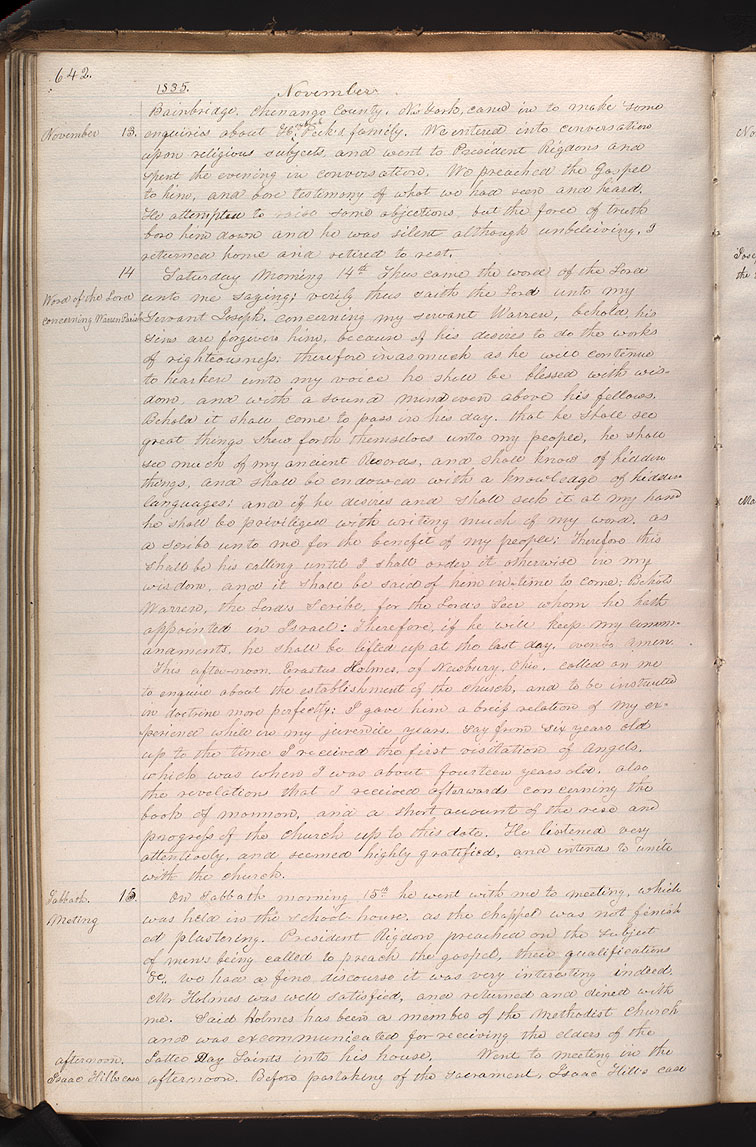 642.
1835. November
Bainbridge, Chenango County, N. York, came in to make some
November 13. enquiries about H. Peck's family. We entered into conversation
upon religious subjects, and went to President Rigdons and
spent the evening in conversation. We preached the Gospel
to him, and bore testimony of what we had seen and heard.
He attempted to raise some objections, but the force of truth
bore him down and he was silent although unbeleiving. I
returned home and retired to rest.
14 Saturday Morning 14th Thus came the word of the Lord
Word of the Lord unto me saying; verily thus saith the Lord unto my
concerning Warren Parish Servant Joseph, concerning my servant Warren, behold his
sins are forgiven him, because of his desires to do the works
of righteousness; therefore inasmuch as he will continue
to hearken unto my voice he shall be blessed with wis-
dom, and with a sound mind even above his fellows.
Behold it shall come to pass in his day, that he shall see
great things shew forth themselves unto my people, he shall
see much of my ancient Records, and shall know of hidden
things, and shall be endowed with a knowledge of hidden
languages; and if he desires and shall seek it at my hand
he shall be privileged with writing much of my word, as
a scribe unto me for the benefit of my people; therefore this
shall be his calling until I shall order it otherwise in my
wisdom, and it shall be said of him in time to come; Behold
Warren, the Lord's Scribe, for the Lord's Seer whom he hath
appointed in Israel: Therefore, if he will keep my comm-
anaments, he shall be lifted up at the last day, even so Amen
This after-noon, Erastus Holmes, of Newbury, Ohio, called on me
to enquire about the establishment of the church, and to be instructed
in doctrine more perfectly: I gave him a brief relation of my ex-
perience while in my juvenile years, say from six years old
up to the time I received the first visitation of angels,
which was when I was about fourteen years old, also
the revelation that I received afterwards concerning the
book of mormon, and a short account of the rise and
progress of the church up to this date. He listened very
attentively, and seemed highly gratified, and intends to unite
with the church.
Sabbath. 15. On Sabbath morning 15th he went with me to meeting, which
Meeting was held in the School house, as the chappel was not finish
ed plastering. President Rigdon preached on the subject
of men's being called to preach the gospel, their qualifications
&c., we had a fine discourse it was very interesting indeed.
Mr Holmes was well satisfied, and returned and dined with
me. Said Holmes has been a member of the Methodist church
and was excommunicated for receiving the elders of the
afternoon. Latter Day Saints into his house, Went to meeting in the
Isaac Hill's case afternoon. Before partaking of the sacrament, Isaac Hill's case